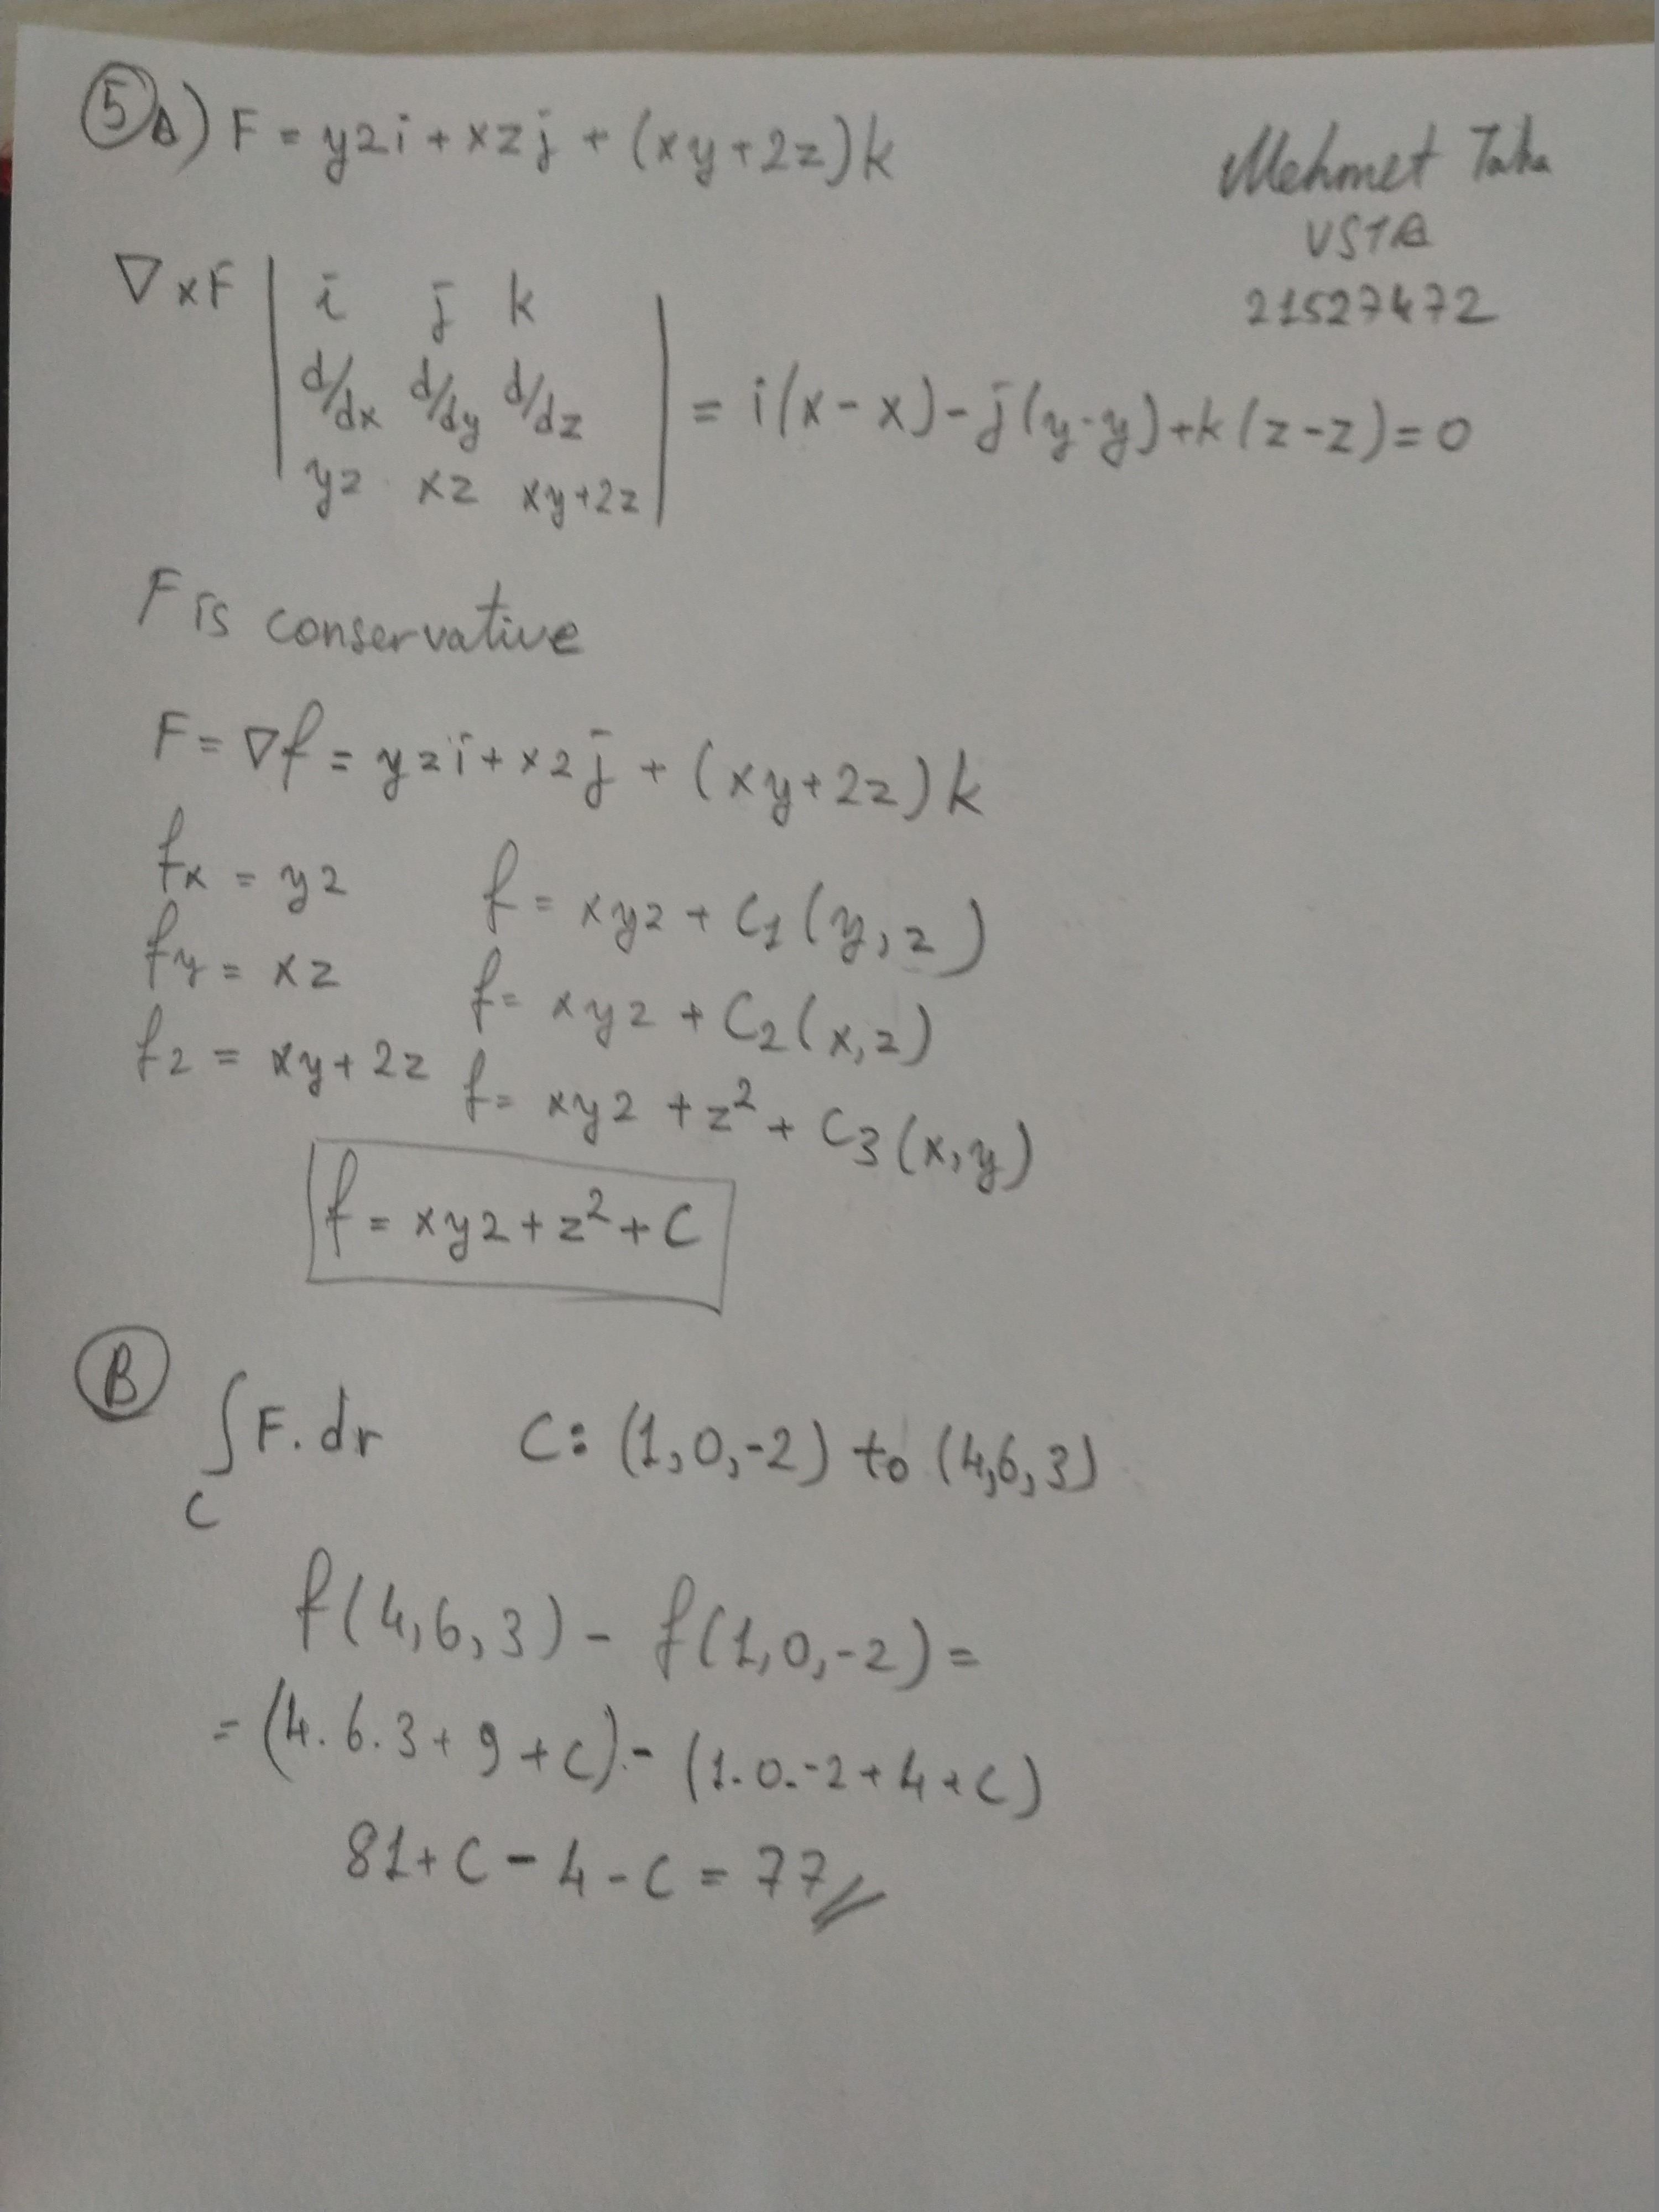 5 A) F = yzi + xzj + (xy+2z)k
Mehmet Taha
USTA
21527472
∇xF | i j k |
| d/dx d/dy d/dz | = i(x-x)-j(y-y)+k(z-z)=0
| yz xz xy+2z |
F is conservative
F = ∇f = yzi + xzj + (xy+2z)k
fx = yz f = xyz + C1(y,z)
fy = xz f = xyz + C2(x,z)
fz = xy+2z f = xyz + z² + C3(x,y)
f = xyz + z² + C
B
∫C F.dr C: (1,0,-2) to (4,6,3)
f(4,6,3) - f(1,0,-2) =
= (4.6.3+9+C) - (1.0.-2+4+C)
81+C-4-C = 77